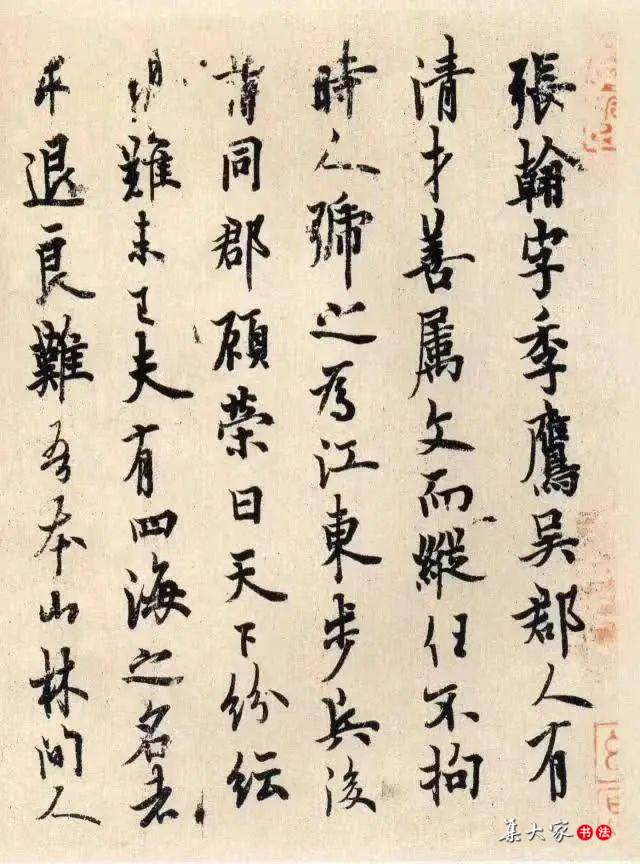 張翰字季鷹吳郡人有
清才善属文而縱任不拘
時人號之為江東步兵後
同郡顧榮曰天下紛紜
難未已夫有四海之名者
求退良難吾本山林間人
集大家 书法